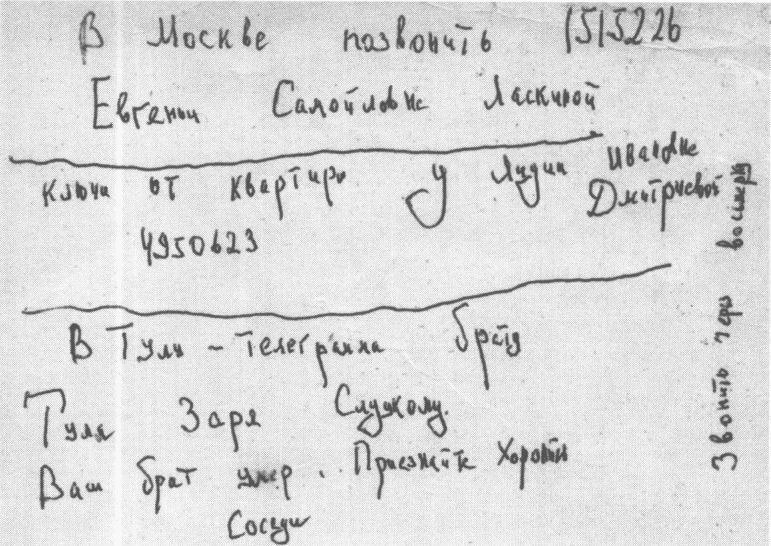 В Москве позвонить 1515226
Евгении Самойловне Ласкиной
Ключи от квартиры у Лидии Ивановне
Дмитриевой
4950623
В Тулу - Телеграмма брату
Тула Заря Слуцкому.
Ваш брат умер. Приезжайте хоронить
Соседи
Звонить через восьмерку